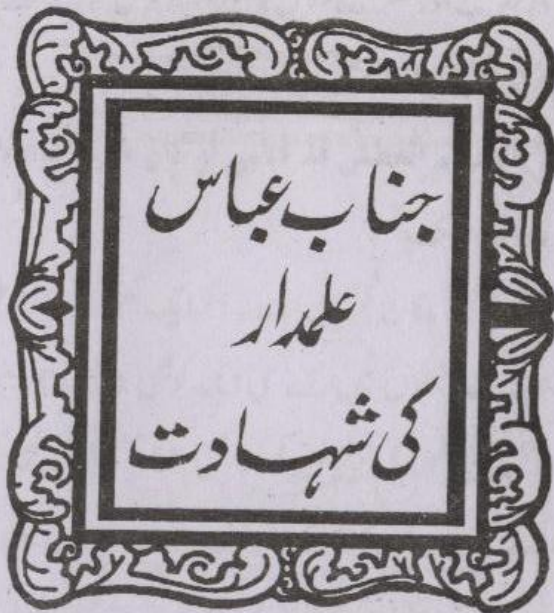 جناب عباس
علمدار
کی شہادت